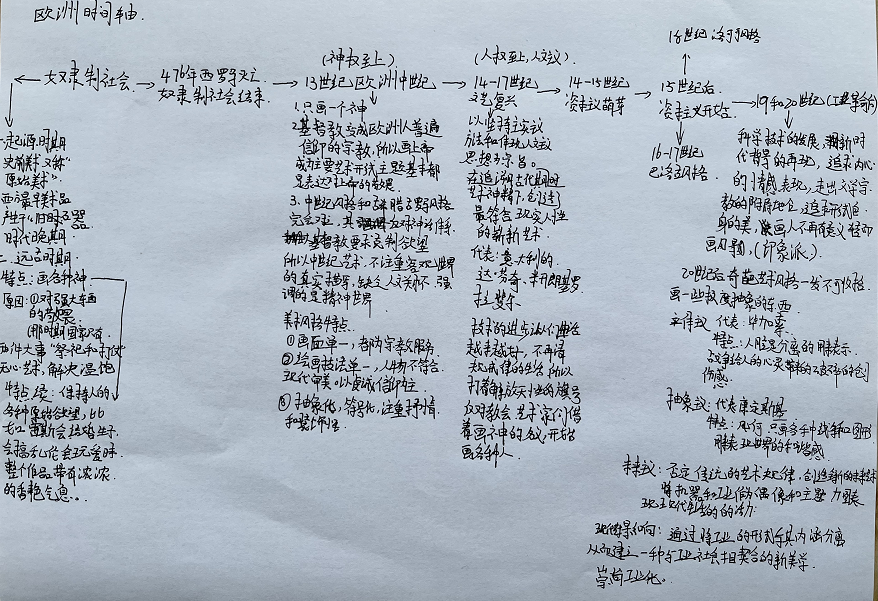 欧洲时间轴
奴隶制社会
476年西罗马灭亡
奴隶制社会结束
(神权至上)
13世纪欧洲中世纪
(人权至上,人文主义)
14-17世纪
文艺复兴
14-15世纪
资本主义萌芽
18世纪 洛可可风格
15世纪后
资本主义开始
16-17世纪
巴洛克风格
19和20世纪(工业革命后)
一起源时期
史前美术又称
"原始美术"
西方最早美术品
产生于旧时石器
时代晚期
二.远古时期
特点:画各种神
原因:①对强大东西
的敬畏
(那时期国家只有
两件大事"祭祀和打仗"
无心艺术,解决温饱
特点 绥:保持人的
各种原始欲望,比
如 宙斯会结婚生子
会搞乱伦会玩爱情
整个作品带有浓浓
的香艳气息。
1.只画一个神
2.基督教变成欧洲人普遍
信仰的宗教,所以画上帝
成为主要艺术形式主题基本都
是表达上帝的
3.中世纪风格和希腊罗马风格
完全不一,其
基督教要求克制欲望
所以中世纪艺术,不注重客观世界
的真实描写,缺乏人文关怀,强
调的是精神世界
美术风格特点:
①画面单一,都为宗教服务
②绘画技法单一,人物不符合
现代审美,以虔诚信仰为主
③抽象化,符号化,注重抒情
和装饰性
以坚持主义
方法和体现人文主义
思想为宗旨。
在追溯古代
艺术神精下,创造了
最符合现实人性
的崭新艺术
代表:意大利的
达·芬奇,米开朗基罗
拉斐尔
技术的进步让人们生活
越来越好,不再满足
教戒律的生活所以
打着解放天性的旗号
反对教会,艺术家们借
着画不神的名义,开始
画各种人
科学技术的发展,
代替写的再现,追求内心
的情感表现,走出文学宗
教的附属地位,追求形式自
身的美,
画习题,(印象派)
20世纪后奇葩艺术风格一发不可收拾
画一些极度抽象的东西
立体主义 代表:毕加索
特点:人脸变分离的用表示
战争给人的心灵带来的巨大的创
伤感
抽象主义:代表康定斯基
特点:几何,只画多种线条和图形
用表现世界的和谐感
未来主义:否定传统的艺术规律,创造全新的未来艺术
将机器和工业作为偶像和主题,力图表
现现代生活的活力
通过将工业的形式与其内涵分离
从而建立一种与工业社会相契合的新美学
崇尚工业化。